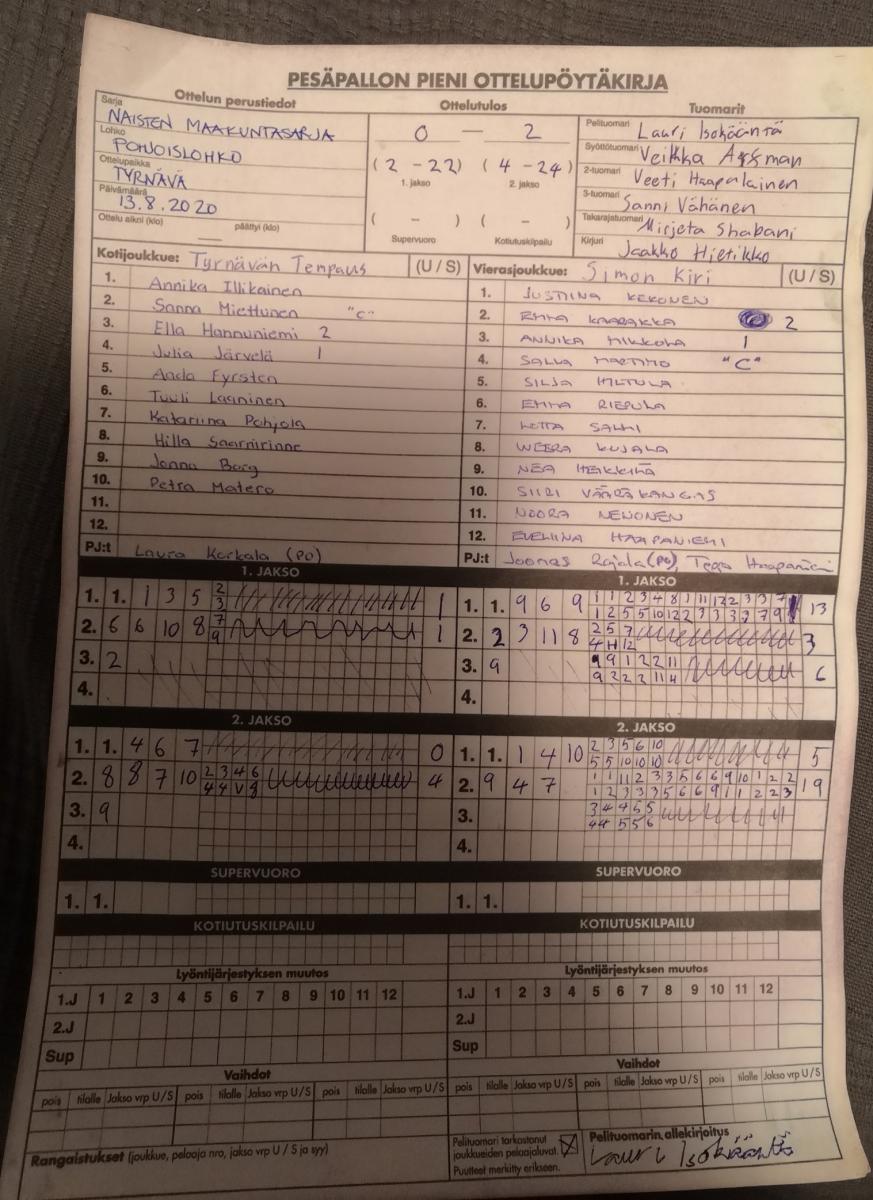 PESÄPALLON PIENI OTTELUPÖYTÄKIRJA
Ottelun perustiedot
Sarja
NAISTEN MAAKUNTASARJA
Lohko
POHJOISLOHKO
Ottelupaikka
TYRNÄVÄ
Päivämäärä
13.8.2020
Ottelu alkoi (klo) päättyi (klo)
Ottelutulos
0 — 2
(2 - 22) (4 - 24)
1. jakso 2. jakso
( - ) ( - )
Supervuoro Kotiutuskilpailu
Tuomarit
Pelituomari Lauri Isokääntä
Syöttötuomari Veikka
2-tuomari Veeti Haapalainen
3-tuomari Sanni Vähänen
Takarajatuomari Mirjeta Shabani
Kirjuri Jaakko Hietikko
Kotijoukkue: Tyrnävän Tempaus (U / S)
1. Annika Illikainen
2. Sanna Miettunen "C"
3. Ella Hannuniemi 2
4. Julia Järvelä 1
5. Aada Fyrsten
6. Tuuli Laaninen
7. Katariina Pohjola
8. Hilla Saarnirinne
9. Jonna Borg
10. Petra Matero
11.
12.
PJ:t Laura Karkala (PO)
Vierasjoukkue: Simon Kiri (U / S)
1. JUSTIINA KEKONEN
2. EMMA KAARAKKA 2
3. ANNIKA MIKKOLA 1
4. SALLA MARTIMO "C"
5. SILJA HILTULA
6. EMMA RIEPULA
7. LOTTA SALMI
8. WEERA KUJALA
9. NEA HEIKKILÄ
10. SIIRI VÄÄRÄKANGAS
11. NOORA NENONEN
12. EVELIINA HAAPANIEMI
PJ:t Joonas Rajala (PO), Teppo Haapaniemi
1. JAKSO
1. 1. 1 3 5 2 1
3
2. 6 6 10 8 7 1
9
3. 2
4.
1. JAKSO
1. 1. 9 6 9 1 1 2 3 4 8 1 11 12 2 3 3 7 13
1 2 5 5 10 12 2 3 3 3 7 7 9
2. 2 3 11 8 2 5 7 3
4 11 12
3. 9 9 9 1 2 2 11 6
9 2 2 2 11 4
4.
2. JAKSO
1. 1. 4 6 7 0
2. 8 8 7 10 2 3 4 6 4
4 4 V 8
3. 9
4.
2. JAKSO
1. 1. 1 4 10 2 3 5 6 10 5
5 5 10 10 10
2. 9 4 7 1 1 11 2 3 3 5 6 6 9 10 1 2 2 19
1 2 3 3 3 5 6 6 9 1 1 2 2 3
3. 3 4 4 5 5
4 4 5 5 6
4.
SUPERVUORO
1. 1.
SUPERVUORO
1. 1.
KOTIUTUSKILPAILU
KOTIUTUSKILPAILU
Lyöntijärjestyksen muutos
1.J 1 2 3 4 5 6 7 8 9 10 11 12
2.J
Sup
Lyöntijärjestyksen muutos
1.J 1 2 3 4 5 6 7 8 9 10 11 12
2.J
Sup
Vaihdot
pois tilalle Jakso vrp U/S pois tilalle Jakso vrp U/S pois tilalle Jakso vrp U/S
Vaihdot
pois tilalle Jakso vrp U/S pois tilalle Jakso vrp U/S pois tilalle Jakso vrp U/S
Rangaistukset (joukkue, pelaaja nro, jakso vrp U / S ja syy)
Pelituomari tarkastanut
joukkueiden pelaajaluvat.
Puutteet merkitty erikseen.
Pelituomarin allekirjoitus
Lauri Isokääntä